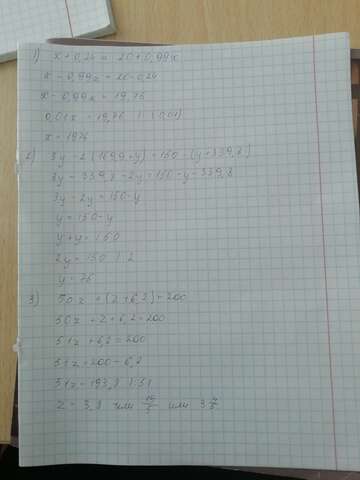 1) x + 0,24 = 20 + 0,99x
x - 0,99x = 20 - 0,24
x - 0,99x = 19,76
0,01x = 19,76 | : (0,01)
x = 1976
2) 3y - 2(169,9 + y) = 150 - (y + 339,8)
3y - 339,8 - 2y = 150 - y - 339,8
3y - 2y = 150 - y
y = 150 - y
y + y = 150
2y = 150 | : 2
y = 75
3) 50z + (z + 6,2) = 200
50z + z + 6,2 = 200
51z + 6,2 = 200
51z = 200 - 6,2
51z = 193,8 | : 51
z = 3,8 или 19/5 или 3 4/5